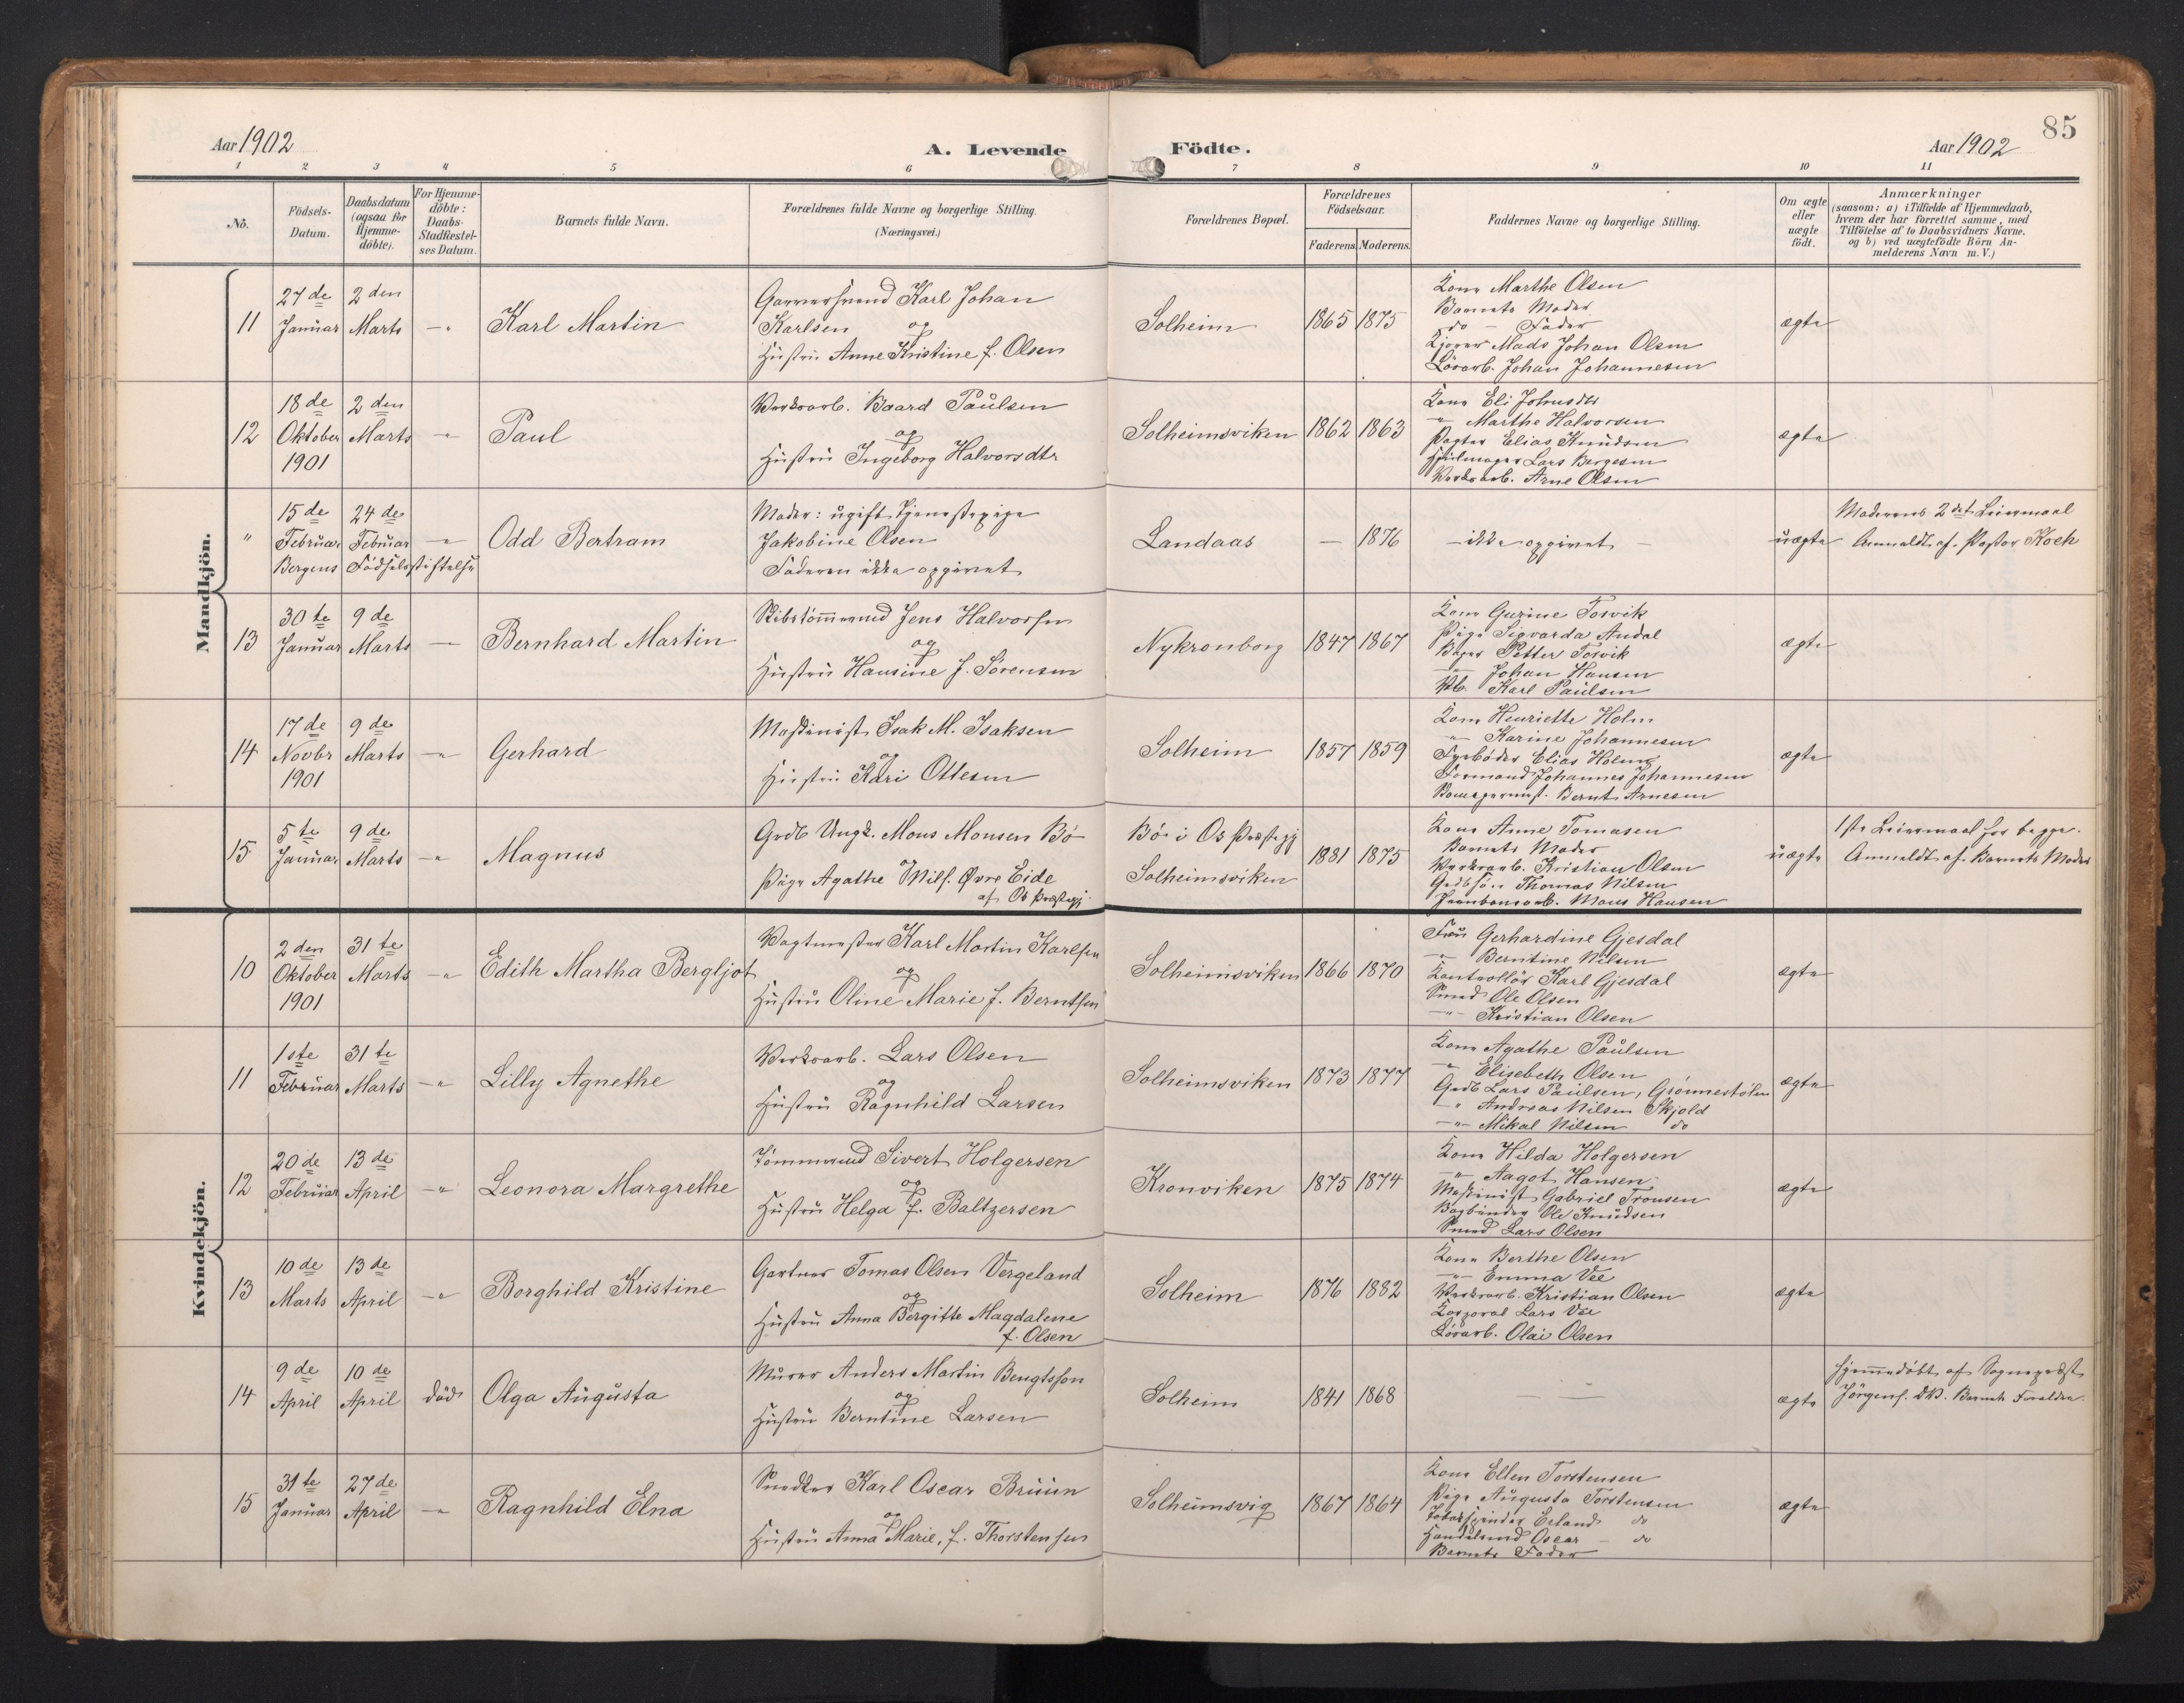 85
Aar 1902
A. Levende Födte.
Aar 1902
1 2 3 4 5 6 7 8 9 10 11
No.
Födsels-
Datum.
Daabsdatum
(ogsaa for
Hjemme-
döbte).
For Hjemme-
döbte:
Daabs-
Stadfæstel-
ses Datum.
Barnets fulde Navn.
Forældrenes fulde Navne og borgerlige Stilling.
(Næringsvei.)
Forældrenes Bopæl.
Forældrenes
Födselsaar.
Faderens. Moderens.
Faddernes Navne og borgerlige Stilling.
Om ægte
eller
uægte
födt.
Anmærkninger
(saasom: a) i Tilfælde af Hjemmedaab,
hvem der har forrettet samme, med
Tilföielse af to Daabsvidners Navne.
og b) ved uægtefödte Börn An-
melderens Navn m. V.)
Mandkjön.
11
27de
Januar
2den
Marts
Karl Martin
Garversvend Karl Johan
Karlsen og
Hustru Anne Kristine f. Olsen
Solheim
1865 1875
Kone Marthe Olsen
Barnets Moder
do - Fader
Mads Johan Olsen
Løsarb. Johan Johannesen
ægte
12
18de
Oktober
1901
2den
Marts
Paul
Værksarb. Baard Paulsen
og
Hustru Ingeborg Halvorsdtr
Solheimsviken
1862 1863
Kone Eli Johnsdtr
" Marthe Halvorsen
Pagter Elias Knudsen
Hjulmager Lars Børgesen
Værksarb. Arne Olsen
ægte
"
15de
Februar
24de
Februar
Bergens Fødselsstiftelse
Odd Bertram
Moder: ugift Tjenestepige
Jakobine Olsen
Faderen ikke opgivet
Landaas
— 1876
- ikke opgivet -
uægte
Moderens 2det Leiermaal
Anmeldt af Pastor Koch
13
30te
Januar
9de
Marts
Bernhard Martin
Skibstømmermd Jens Halvorsen
og
Hustru Hansine f. Sørensen
Nykronborg
1847 1867
Kone Gurine Tosvik
Pige Sigvarda Andal
Bager Petter Tosvik
-"- Johan Hansen
Karl Paulsen
ægte
14
17de
Novbr
1901
9de
Marts
Gerhard
Maskinist Isak M. Isaksen
og
Hustru Kari Ottesen
Solheim
1857 1859
Kone Henriette Holm
-"- Karine Johannesen
Fyrbøder Elias Holm
Formand Johannes Johannesen
Bernt Arnesen
ægte
15
5te
Januar
9de
Marts
Magnus
Grdb Ungk. Mons Monsen Bö
og
Pige Agathe Nilsd. Øvre Eide
af Os Præstegj.
Bö i Os Præstegj
Solheimsviken
1881 1875
Kone Anne Tomasen
Barnets Moder
Værksarb. Kristian Olsen
Grdbsön Thomas Nilsen
Jernbanearb. Mons Hansen
uægte
1ste Leiermaal for begge.
Anmeldt af Barnets Moder
Kvindekjön.
10
2den
Oktober
1901
31te
Marts
Edith Martha Bergljot
Vagtmester Karl Martin Karlsen
og
Hustru Oline Marie f. Berntsen
Solheimsviken
1866 1870
Fru Gerhardine Gjesdal
-"- Berntine Nilsen
Kontrollör Karl Gjesdal
Smed Ole Olsen
-"- Kristian Olsen
ægte
11
1ste
Februar
31te
Marts
Lilly Agnethe
Værksarb. Lars Olsen
og
Hustru Ragnhild Larsen
Solheimsviken
1873 1877
Kone Agathe Paulsen
" Elisebeth Olsen
Grdb Lars Paulsen, Grönnestölen
-"- Andreas Nilsen Skjold
-"- Mikal Nilsen do
ægte
12
20de
Februar
13de
April
Leonora Margrethe
Tömmermd Sivert Holgersen
og
Hustru Helga f. Baltzersen
Kronviken
1875 1874
Kone Hilda Holgersen
-"- Aagot Hansen
Maskinist Gabriel Tronsen
Bogbinder Ole Knudsen
Smed Lars Olsen
ægte
13
10de
Marts
13de
April
Borghild Kristine
Gartner Tomas Olsen Vergeland
og
Hustru Anna Bergitte Magdalene
f. Olsen
Solheim
1876 1882
Kone Berthe Olsen
-"- Emma Vee
Værksarb. Kristian Olsen
Korporal Lars Vee
Løsarb. Olai Olsen
ægte
14
9de
April
10de
April
död
Olga Augusta
Murer Anders Martin Bengtsson
og
Hustru Berntine Larsen
Solheim
1841 1868
ægte
Hjemmedöbt af Sogneprest
Jörgens. DV. Barnets Forældre.
15
31te
Januar
27de
April
Ragnhild Elna
Snedker Karl Oscar Bruun
og
Hustru Anna Marie, f. Thorstensen
Solheimsvig
1867 1864
Kone Ellen Torstensen
Pige Augusta Torstensen
Tobakspinder Erland do
Handelsmd Oscar - do
Barnets Fader
ægte